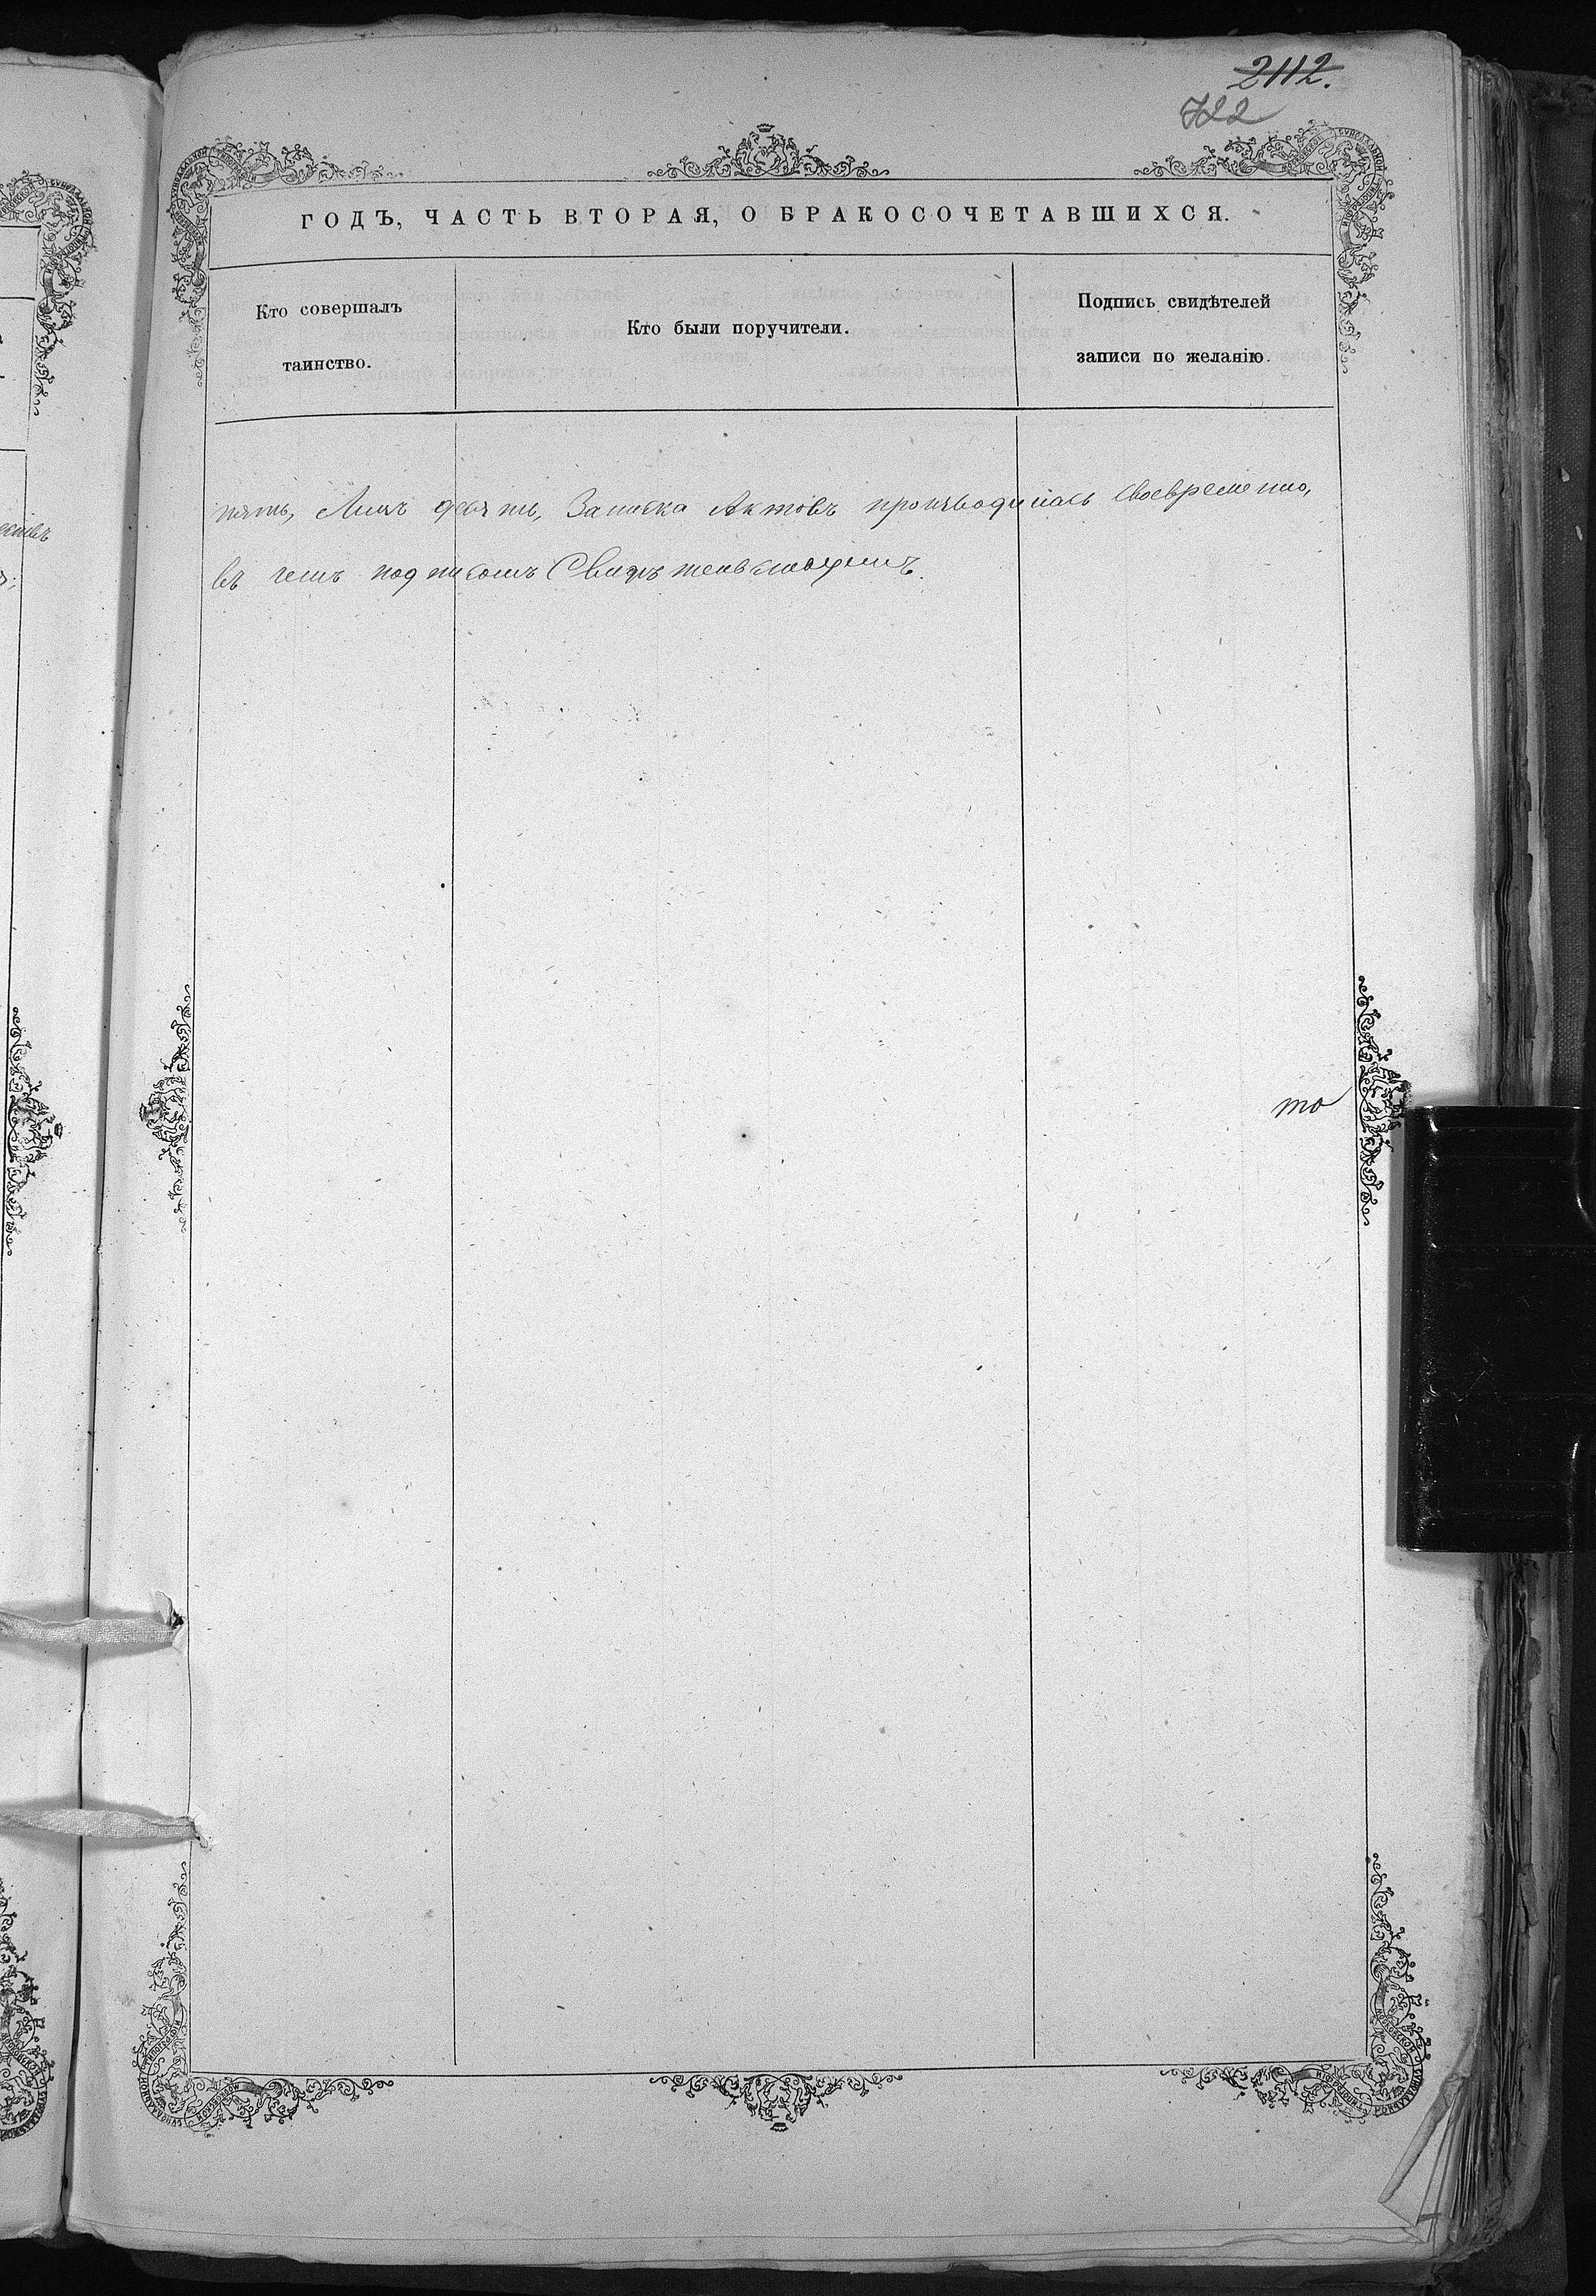 2112.
722
ГОДЪ, ЧАСТЬ ВТОРАЯ, О БРАКОСОЧЕТАВШИХСЯ.
Кто совершалъ
таинство.
Кто были поручители.
Подпись свидѣтелей
записи по желанію.
пять, Лицъ десять, Записка Актовъ производилась своевременно,
въ чемъ подписомъ Свидѣтельствуемъ.
то